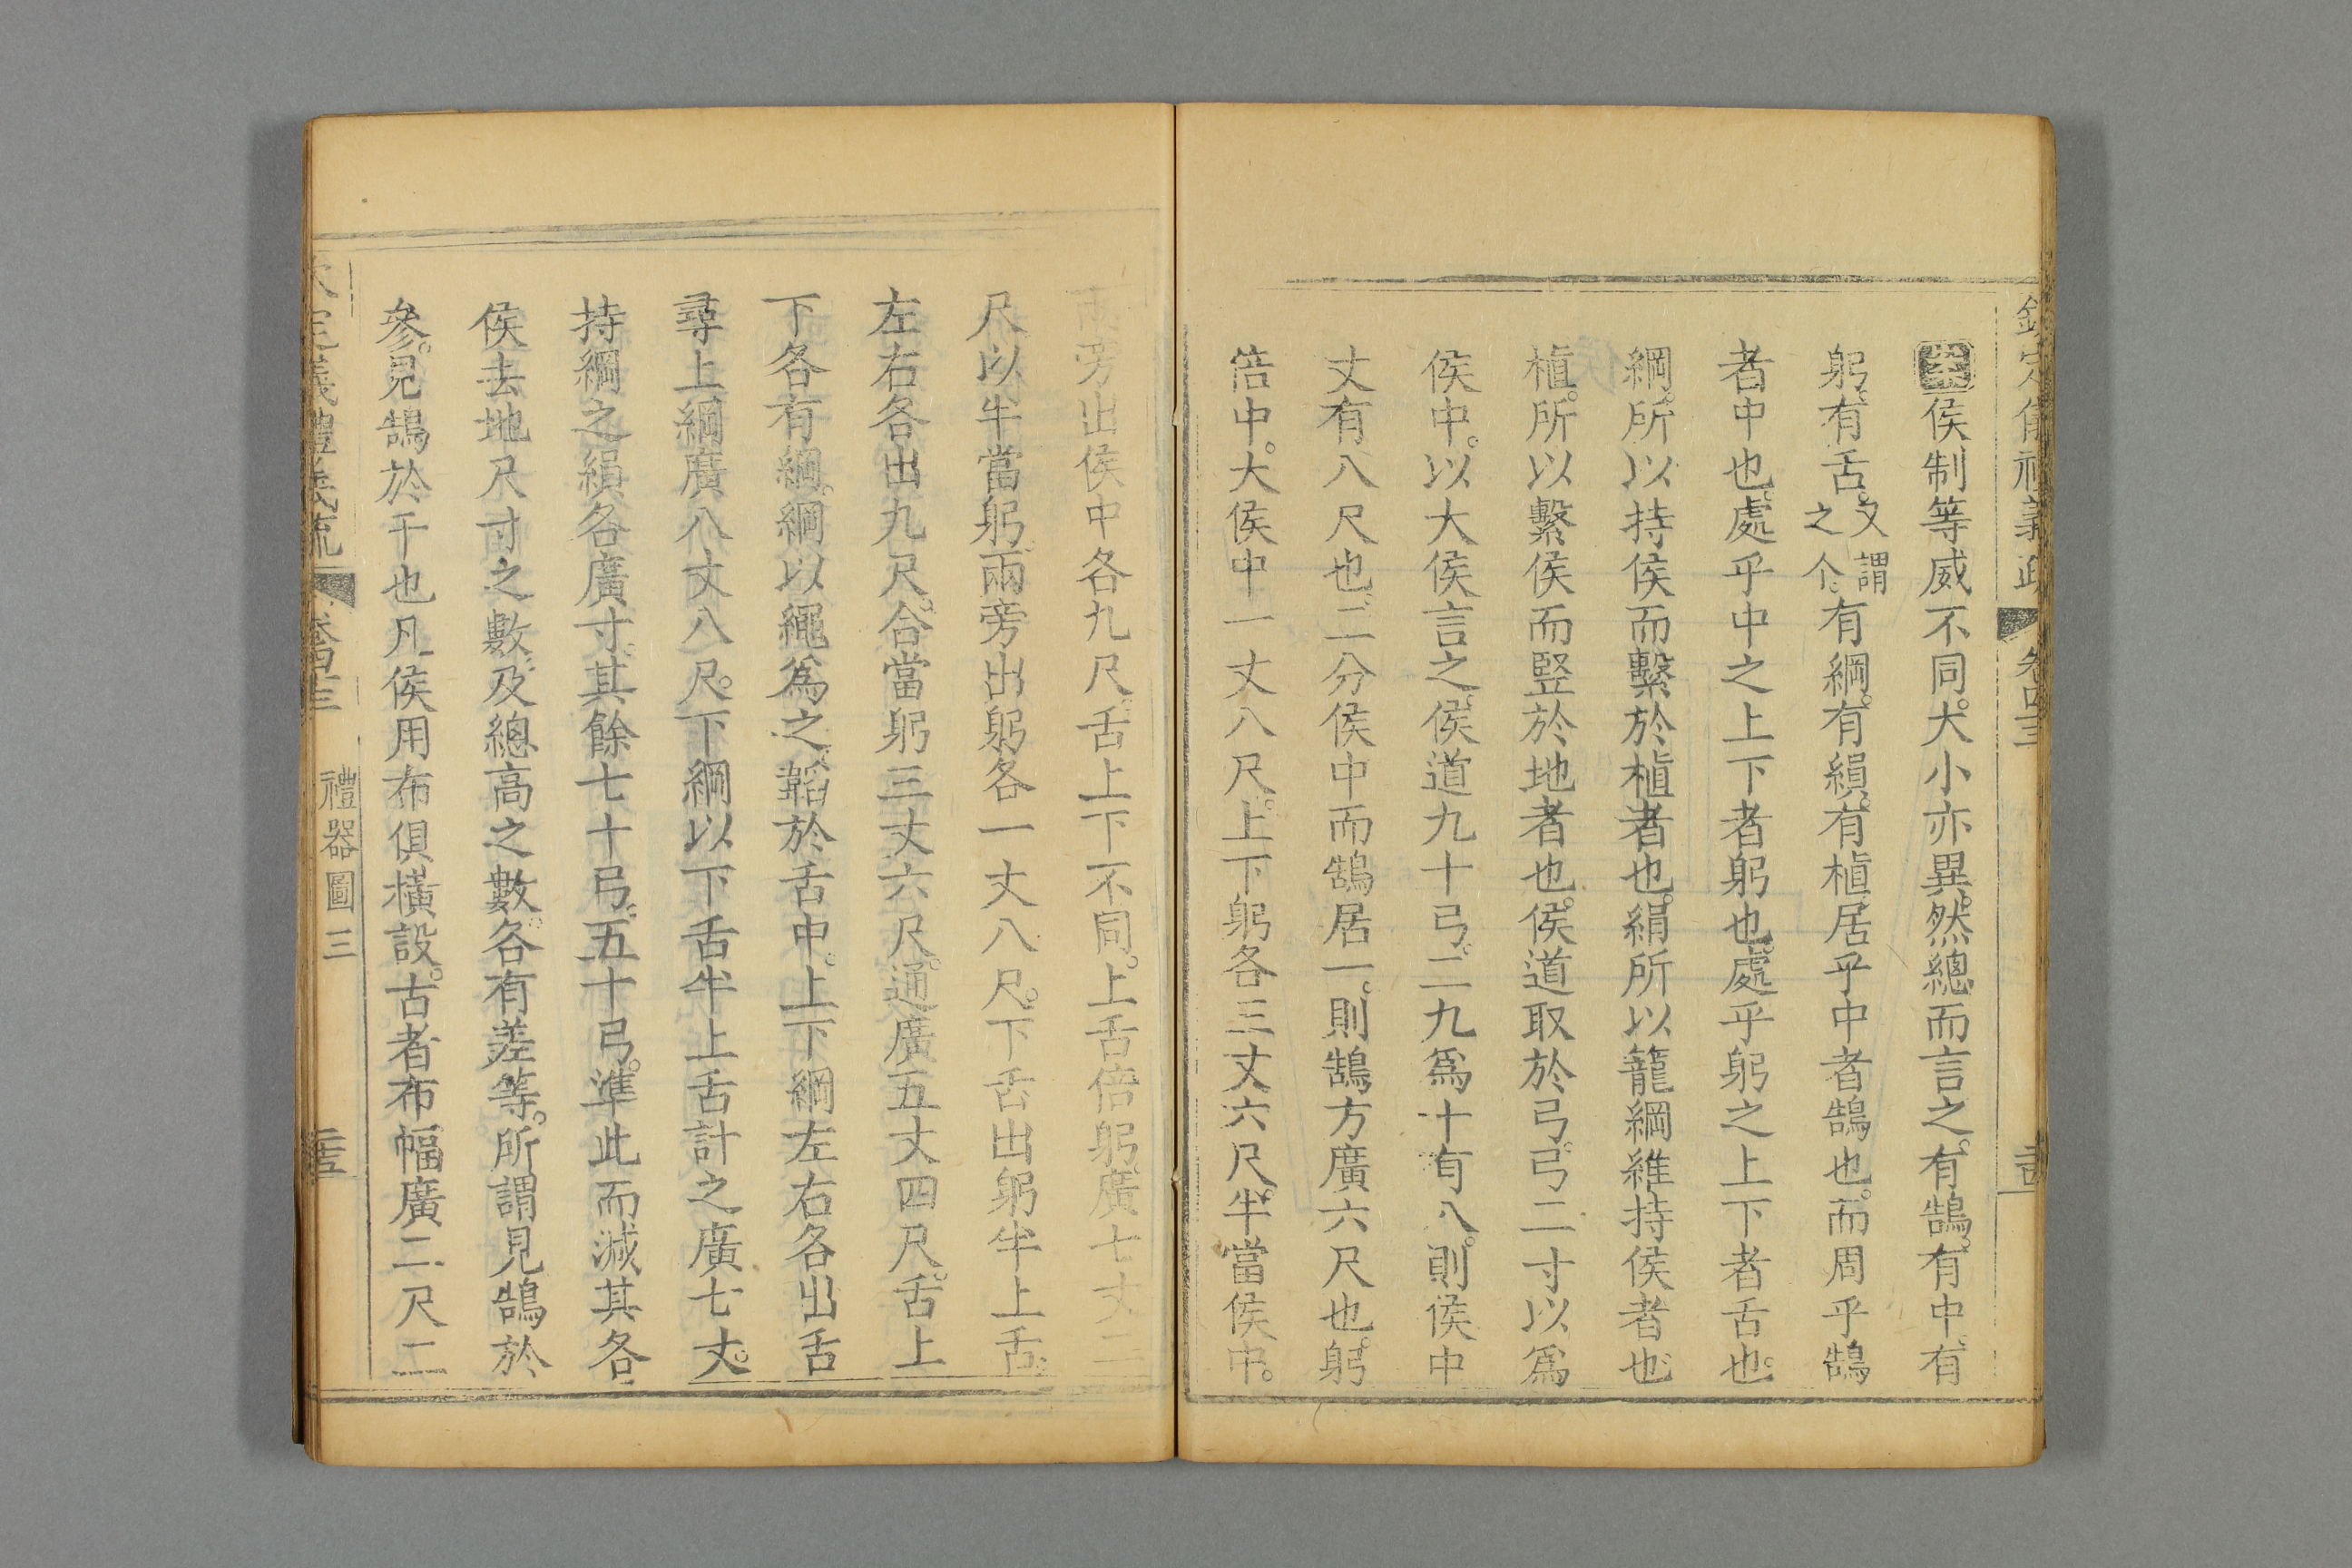 欽定儀禮義疏 卷四十三
案侯制等威不同。大小亦異。然總而言之。有鵠。有中。有
躬。有舌。又謂之个。有綱。有縜。有植。居乎中者鵠也。而周乎鵠
者中也。處乎中之上下者躬也。處乎躬之上下者舌也。
綱。所以持侯而繫於植者也。縜所以籠綱維持侯者也。
植。所以繫侯而竪於地者也。侯道取於弓。弓二寸以爲
侯中。以大侯言之。侯道九十弓。二九爲十有八。則侯中
丈有八尺也。三分侯中而鵠居一。則鵠方廣六尺也。躬
倍中。大侯中一丈八尺。上下躬各三丈六尺。半當侯中。
兩旁出侯中各九尺。舌上下不同。上舌倍躬廣七丈二
尺以半當躬兩旁出躬各一丈八尺。下舌出躬半上舌。
左右各出九尺。合當躬三丈六尺。通廣五丈四尺。舌上
下各有綱。綱以繩爲之。韜於舌中。上下綱左右各出舌
尋上綱廣八丈八尺。下綱以下舌半上舌計之廣七丈。
持綱之縜各廣寸。其餘七十弓。五十弓。準此而減其各
侯去地尺寸之數。及總高之數。各有差等。所謂見鵠於
參。見鵠於干也。凡侯用布俱橫設。古者布幅廣二尺二
欽定義禮義疏 卷四十三 禮器圖三